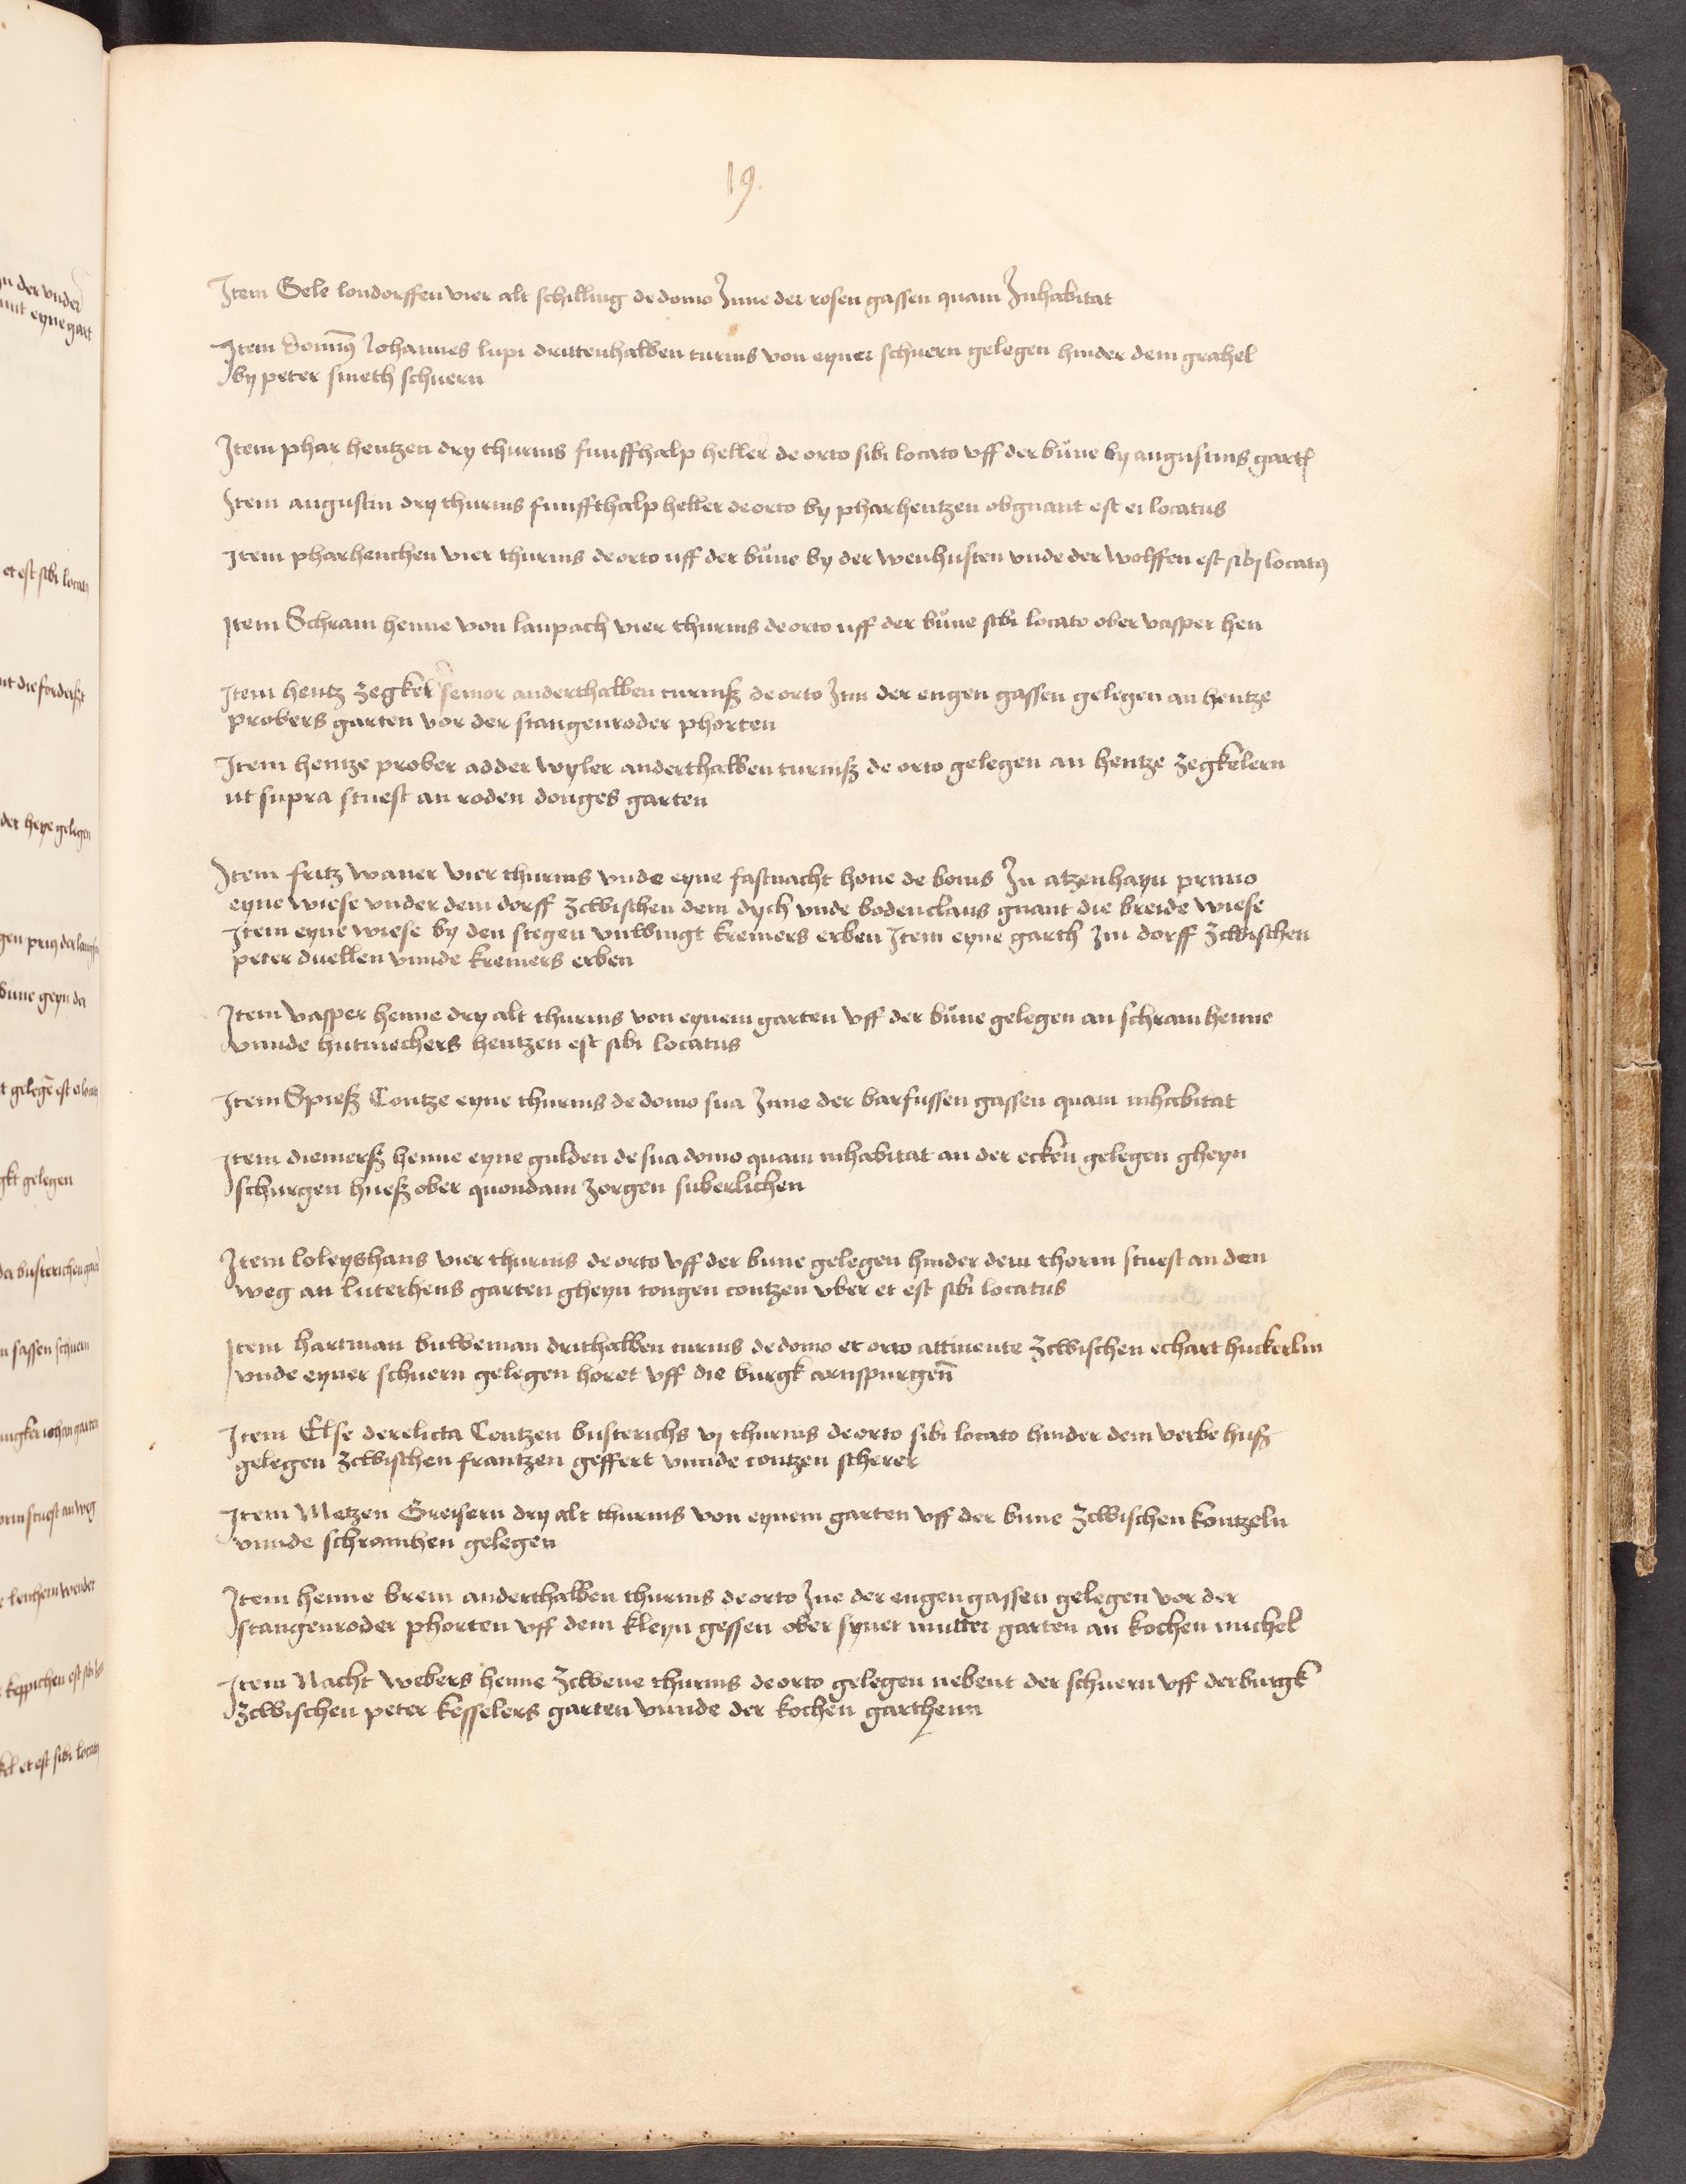 19.
Item Gele londorffen vier alt schilling de domo Inne der rosen gassen quam Inhabitat
Item domin9 Johannes lupi drittenhalben turnis von eyner schuern gelegen hinder dem grahel
by peter smeth schuern
Item phar hentzen dry thurnis funffthalp heller de orto sibi locato vff der bune by augustins gart
Item augustin dry thurnis funffthalp heller de orto by pharhentzen obgnant est ei locatus
Item pharhenchen vier thurnis de orto uff der bune by der wenhusten vnde der wolffen est sibi locat9
Item Schram henne von laupach vier thurnis de orto uff der bune sibi locato ober vasper hen
Item hentz zegkel senior anderthalben turniß de orto Inn der engen gassen gelegen an hentze
probers garten vor der stangenroder phorten
Item hentze prober adder wyler anderthalben turniß de orto gelegen an hentze zegkelern
ut supra stuest an roden donges garten
Item fritz waner vier thurnis vnde eyne fastnacht hone de bonis In atzenhayn primo
eyne wiese vnder dem dorff zcwischen dem dych vnde bodenclaus gnant die breide wiese
Item eyne wiese by den stegen vnwingt kremers erben Item eyne garth Im dorff zcwischen
peter duellen vnnde kremers erben
Item vasper henne dry alt thurnis von eynem garten vff der bune gelegen an schram henne
vnnde hutmechers hentzen est sibi locatus
Item Spieß Contze eyne thurnis de domo sua Inne der barfussen gassen quam inhabitat
Item diemerß henne eyne gulden de sua domo quam inhabitat an der ecken gelegen gheyn
schurgen hueß ober quondam zorgen suberlichen
Item loleyshans vier thurnis de orto vff der bune gelegen hinder dem thorm stuest an den
weg an luterhens garten gheyn tongen contzen vber et est sibi locatus
Item hartman buweman drithalben turnis de domo et orto attinente zcwischen echart huckerlin
vnde eyner schuern gelegen horet vff die burgk arnspurgen
Item Else derelicta Contzen busterichs vj thurnis de orto sibi locato hinder dem verbe huß
gelegen zcwischen frantzen geffert vnnde contzen scherer
Item Metzen Greisern dry alt thurnis von eynem garten vff der bune zcwischen kontzeln
vnnde schramhen gelegen
Item henne brem anderthalben thurnis de orto Jne der engen gassen gelegen vor der
stangenroder phorten vff dem kleyn gessen ober syner mutter garten an kochen michel
Item Nacht webers henne zcwene thurnis de orto gelegen nebent der schuern vff der burgk
zcwischen peter kesselers garten vnnde der kochen garthenn